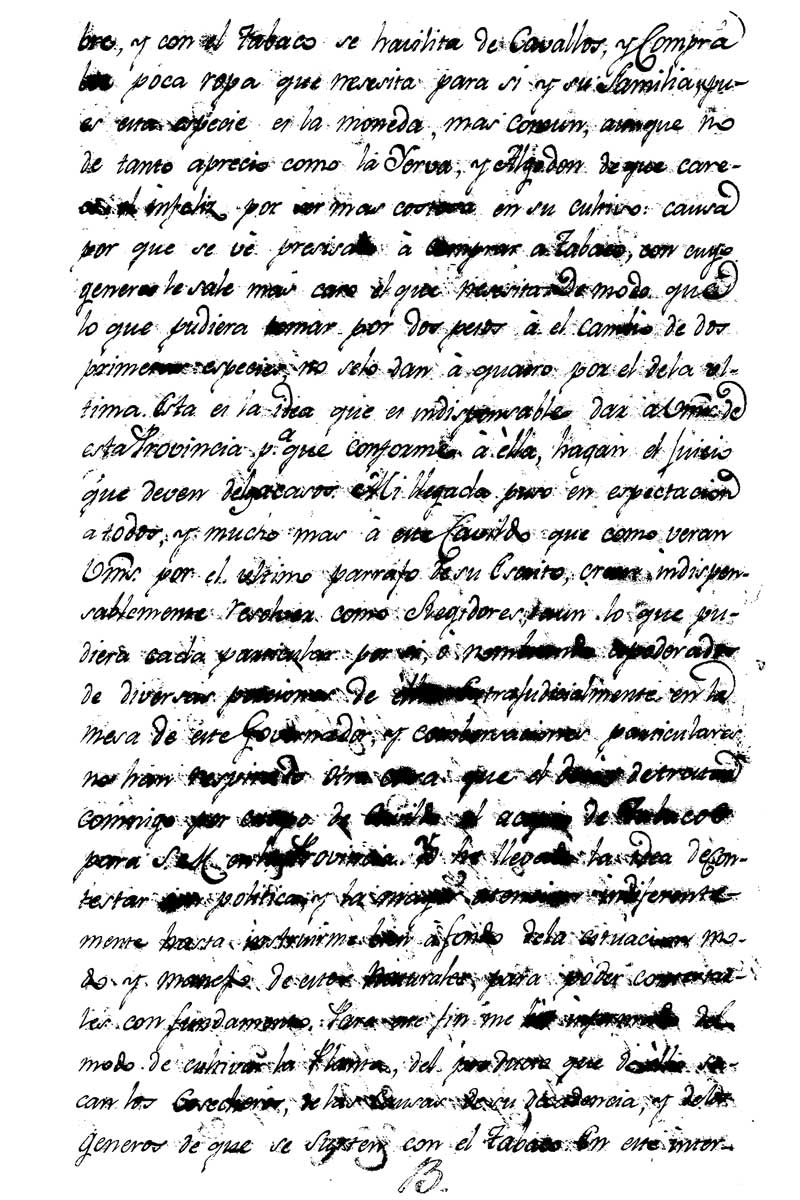 bre, y con el Tabaco se havilita de Cavallos, y Compra
la poca ropa que nesesita para si y su Familia, pu-
es esta especie es la moneda, mas comun, aunque no
de tanto aprecio como la Yerva, y Algodon de que care-
el infeliz por ser mas costosa en su cultivo: causa
por que se vè presisado à comprar a Tabaco, con cuyo
genero le sale mas caro el que nesesita: De modo que
lo que pudiera tomar por dos pesos à el cambio de dos
primeras especies, no selo dan à quatro por el dela ul-
tima. Esta es la idea que es indispensable dar a Vms. de
esta Provincia p.ª que conforme à èlla, hagan el Juicio
que deven delos acasos. Mi llegada puso en espectacion
a todos, y mucho mas à este Cavildo que como veran
Vms. por el ultimo parrafo de su Escrito, creen indispen-
sablemente resolver como Regidores, aun lo que pu-
diera cada particular por si, ò nombrando apoderados
de diversas porciones de Extrajudicialmente en la
mesa de este Governador, y combersaciones particulares
no han respirado otra cosa que el deseo de tratar
conmigo por cuerpo de Cavildo el acopio de Tabacos
para S. M. en la Provincia. Yo he llevado la idea de con-
testar con politica, y la mayor atencion indiferente-
mente hasta instruirme bien à fondo dela situacion mo-
do y manejo de estos Naturales, para poder contestar-
les con fundamento. Para este fin me he informado del
modo de cultivar la Planta, del producto que de èlla sa-
can los Cosecheros, de las Causas de su decadencia, y delos
Generos de que se surten con el Tabaco. En este inter-
B.